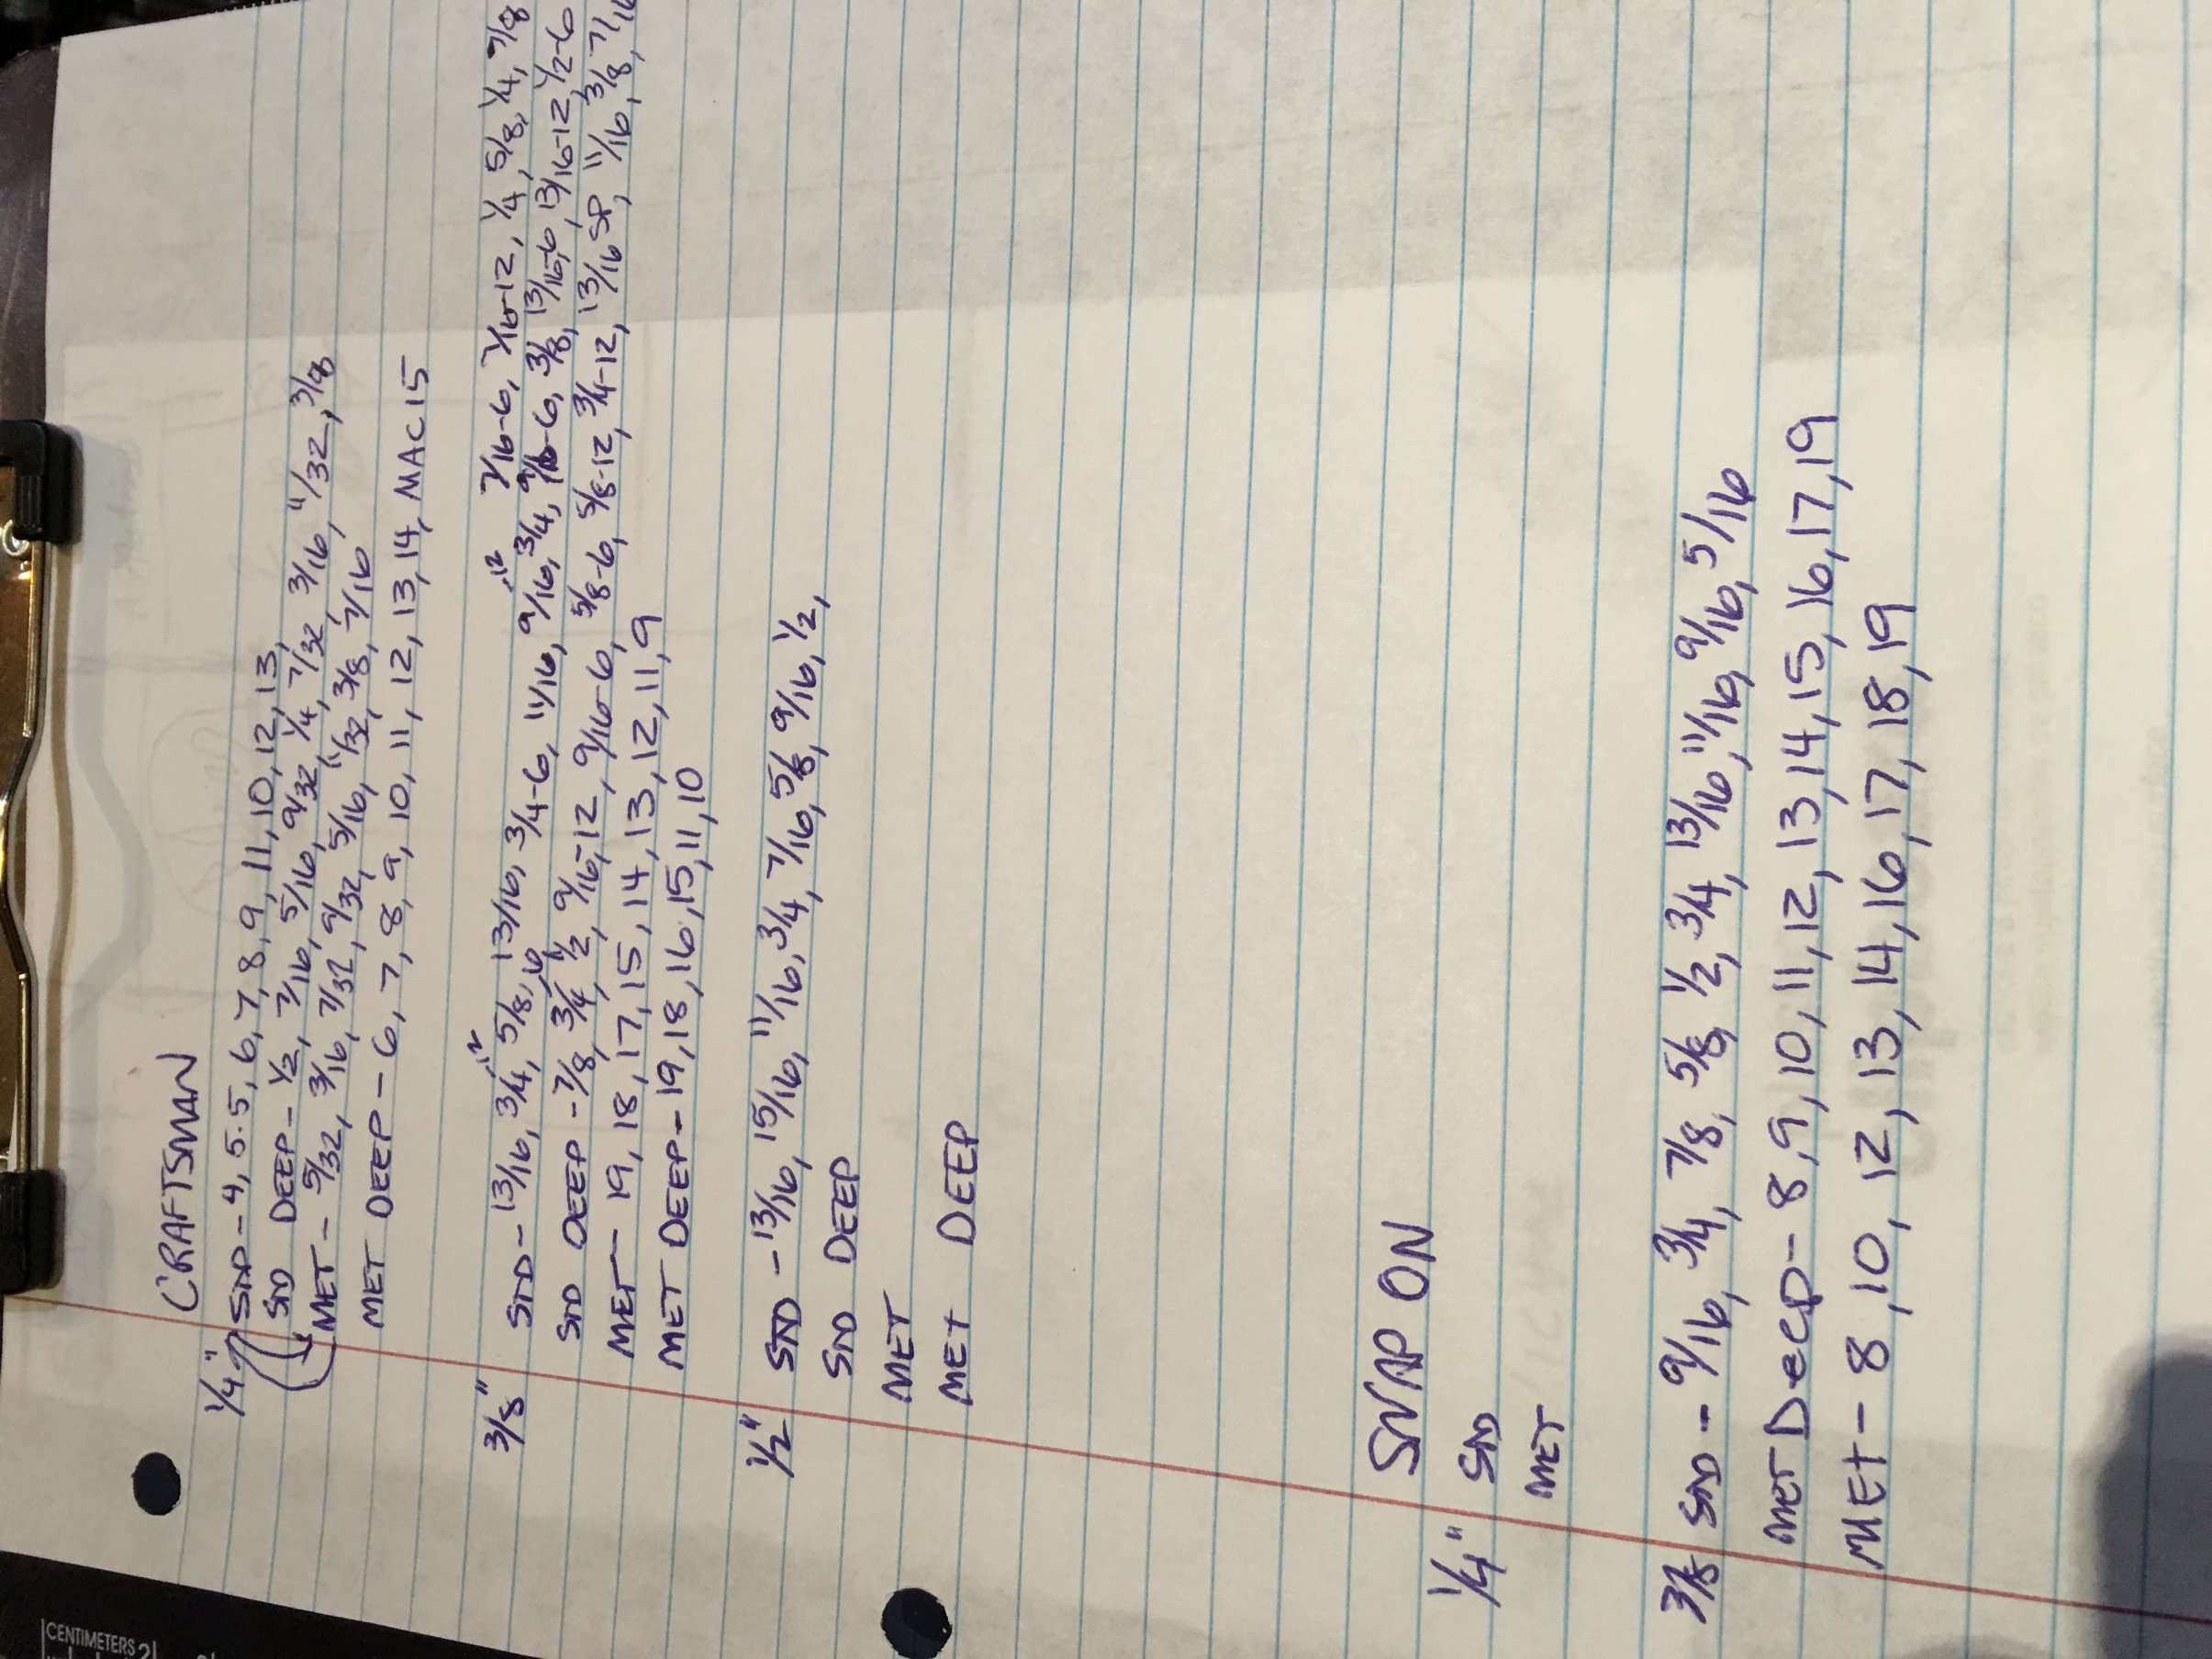 CRAFTSMAN
1/4" STD - 4, 5.5, 6, 7, 8, 9, 11, 10, 12, 13,
STD DEEP - 1/2, 7/16, 5/16, 9/32, 1/4, 7/32, 3/16, 11/32, 3/8
MET - 5/32, 3/16, 7/32, 9/32, 5/16, 11/32, 3/8, 7/16
MET DEEP - 6, 7, 8, 9, 10, 11, 12, 13, 14, MAC 15
3/8" STD - 13/16, 3/4-12, 5/8, 13/16, 3/4-6, 11/16, 9/16-12, 7/16-6, 7/16-12, 1/4, 5/8, 1/4, 7/8
STD DEEP - 7/8, 3/4, 1/2, 9/16-12, 9/16-6, 3/4, 9/16-6, 3/8, 13/16-6, 13/16-12, 1/2-6
5/8-6, 5/8-12, 3/4-12, 13/16 SP, 11/16, 3/8, 7/16
MET - 19, 18, 17, 15, 14, 13, 12, 11, 9
MET DEEP - 19, 18, 16, 15, 11, 10
1/2" STD - 13/16, 15/16, 11/16, 3/4, 7/16, 5/8, 9/16, 1/2,
STD DEEP
MET
MET DEEP
SNAP ON
1/4" STD
MET
3/8 STD - 9/16, 3/4, 7/8, 5/8, 1/2, 3/4, 13/16, 11/16, 9/16, 5/16
MET Deep - 8, 9, 10, 11, 12, 13, 14, 15, 16, 17, 19
MEt - 8, 10, 12, 13, 14, 16, 17, 18, 19
CENTIMETERS 2